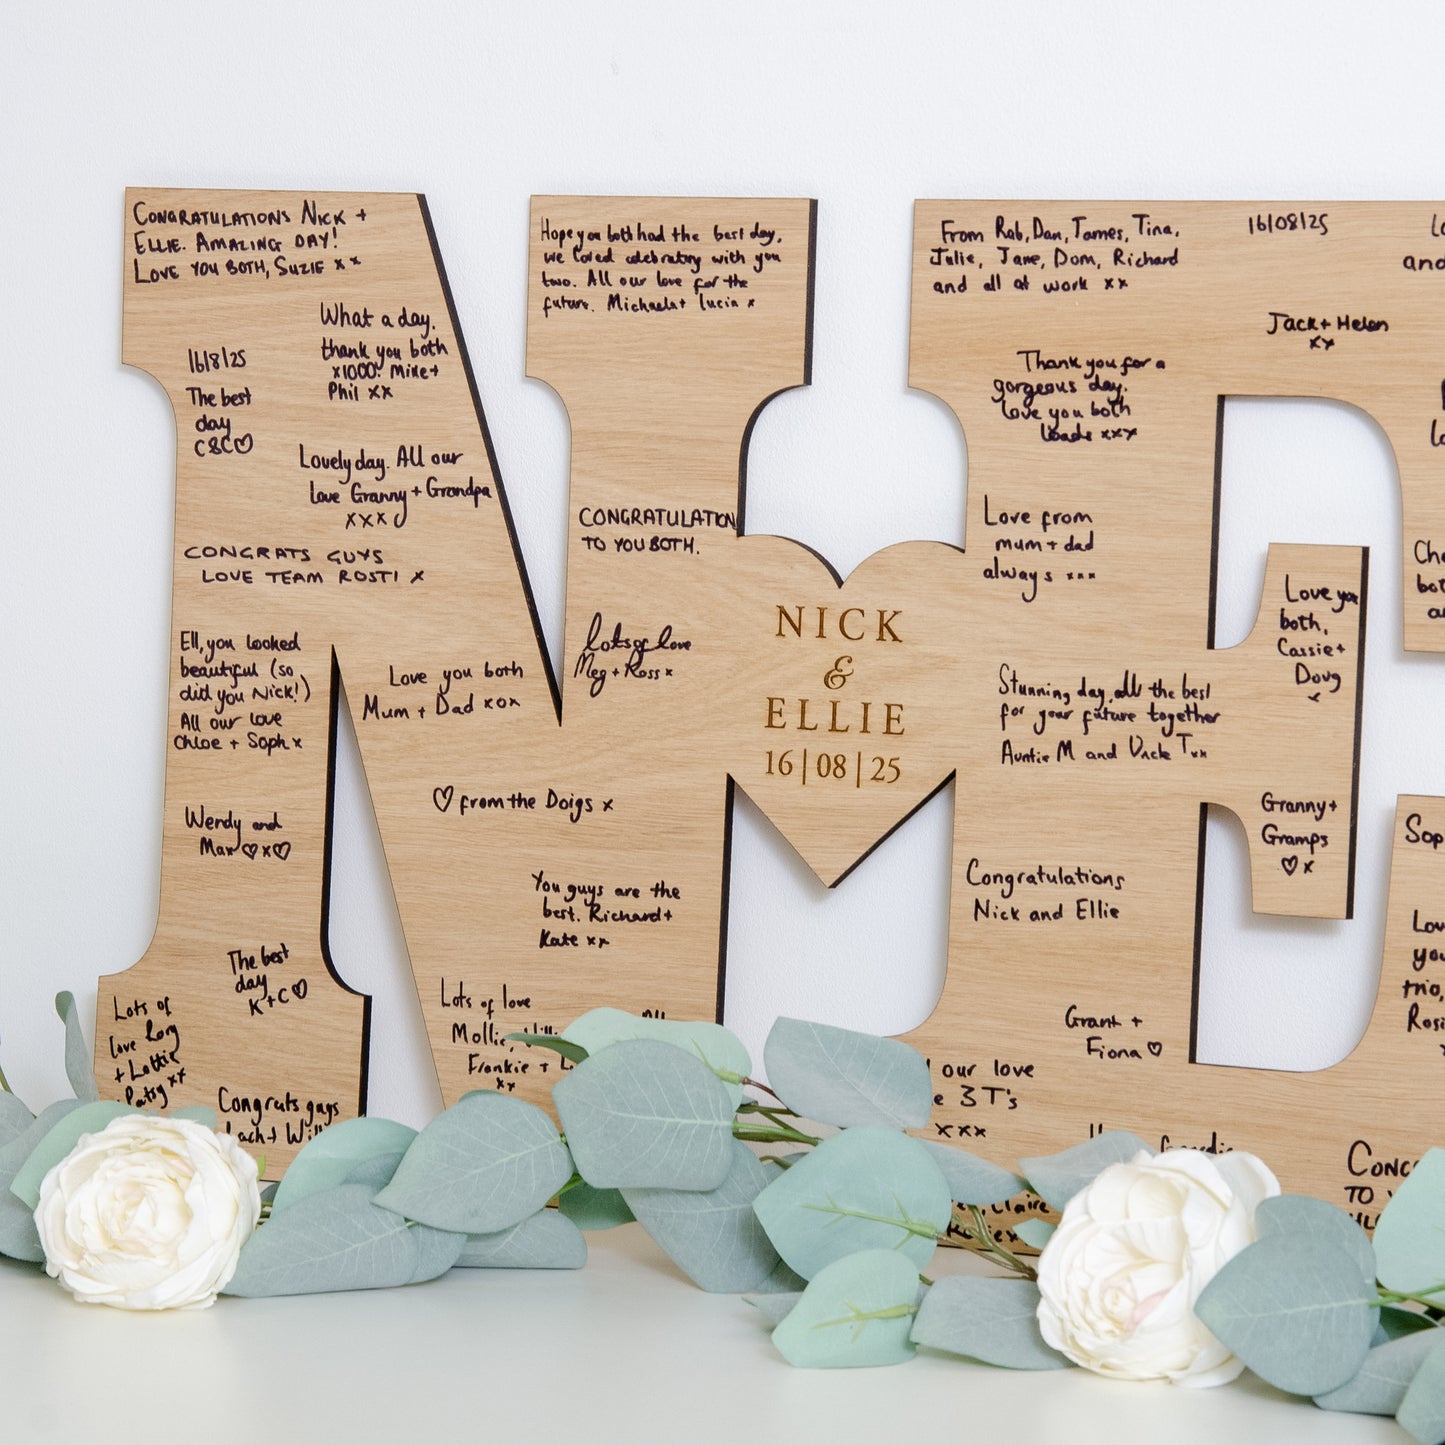 CONGRATULATIONS NICK +
ELLIE. AMAZING DAY!
LOVE YOU BOTH, SUZIE x x
What a day.
thank you both
x1000! Mike +
Phil xx
16/8/25
The best
day
C&C♡
Lovely day. All our
love Granny + Grandpa
xxx
CONGRATS GUYS
LOVE TEAM ROSTI x
Ell, you looked
beautiful (so
did you Nick!)
All our love
Chloe + Soph x
Love you both
Mum + Dad xox
♡ from the Doigs x
Wendy and
Max ♡x♡
You guys are the
best. Richard +
Kate xx
The best
day
K+C♡
Lots of
love Rory
+ Lottie
Patsy xx
Congrats guys
Lots of love
Mollie,
Frankie +
xx
All
Hope you both had the best day,
we loved celebrating with you
two. All our love for the
future. Michaela + Lucia x
CONGRATULATION
TO YOU BOTH.
lots of love
Meg + Ross x
NICK
&
ELLIE
16|08|25
From Rob, Dan, James, Tina,
Julie, Jane, Dom, Richard
and all at work xx
16/08/25
Jack + Helen
xx
Thank you for a
gorgeous day.
Love you both
loads xxx
Love from
mum + dad
always xxx
Love you
both,
Cassie +
Doug
x
Stunning day, all the best
for your future together
Auntie M and Uncle T xx
Granny +
Gramps
♡x
Congratulations
Nick and Ellie
Grant +
Fiona ♡
our love
3 T's
xxx
Claire
and
Sop
you
trio,
Rosi
CONG
TO